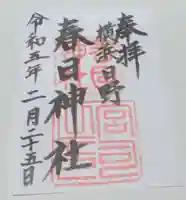 奉拝
横浜日野
春日神社
令和五年二月二十五日